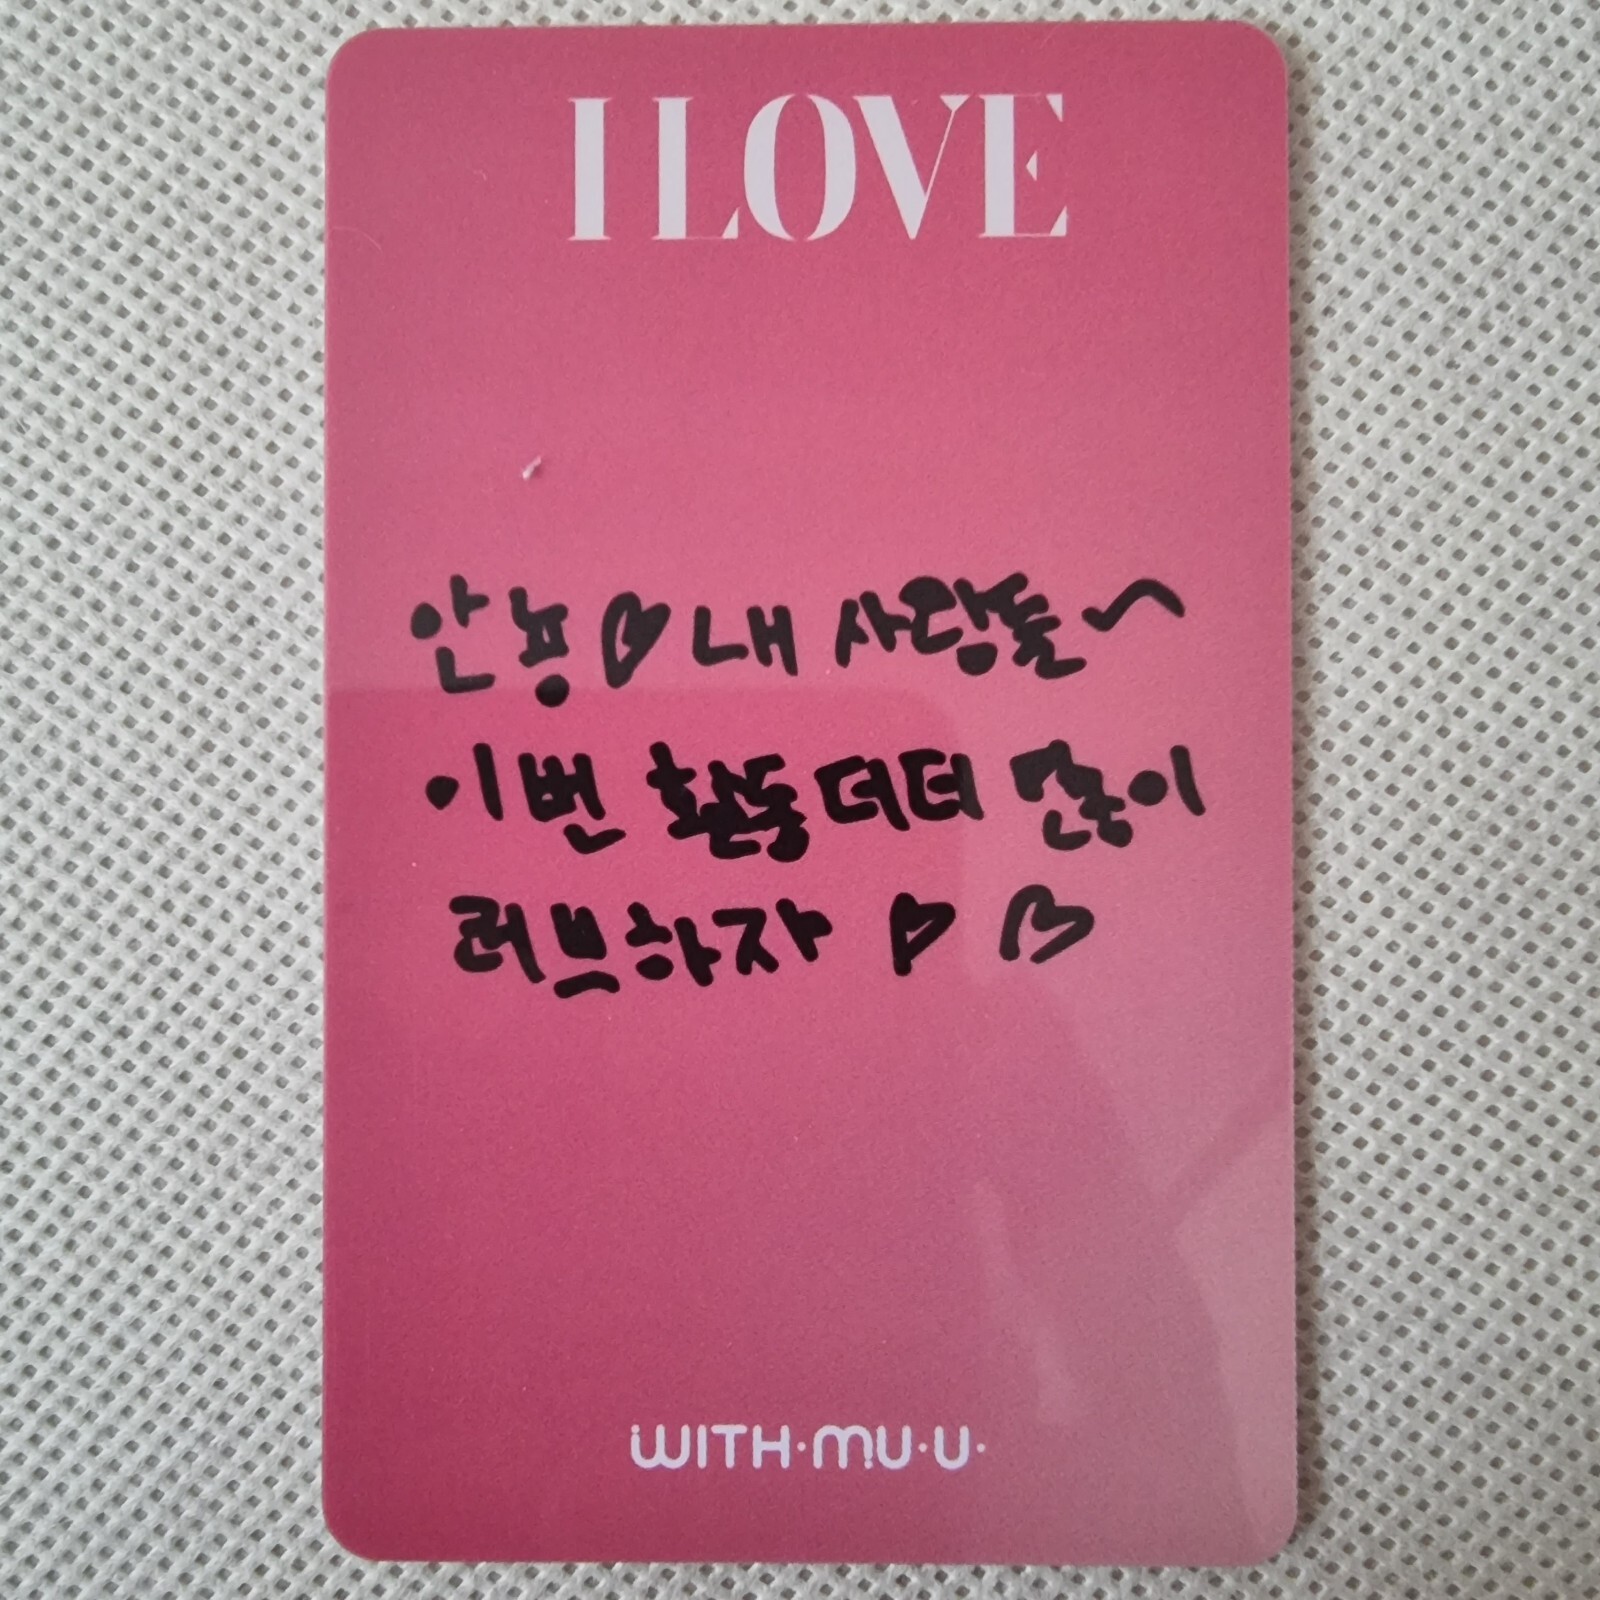 I LOVE
안뇽♡내 사랑들~
이번 활동 더더 많이
러브하자 ♡ ♡
WITH·MU·U·